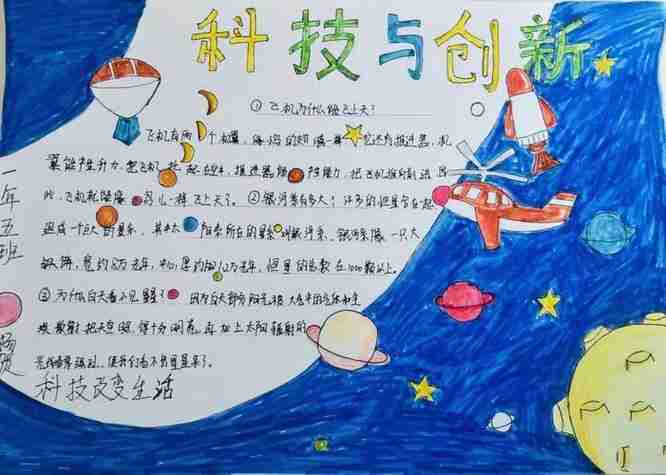 科技与创新
①飞机为什么能飞上天?
飞机有两个机翼,像鸟的翅膀一样,它还有推进器,机
翼能产生升力,把飞机托起在空中,推进器能产生推力,把飞机推向前进
飞机就能像鸟儿一样飞上天了。②银河系有多大?许多的恒星合在一起
组成一个巨大的星系,其中太阳系所在的星系叫银河系,银河系像一只大
铁饼,宽约8万光年,中心厚约1.2万光年,但星的总数在1000颗以上。
③为什么白天看不见星星?因为白天部分阳光被大气中的气体和尘
埃散射把天空照得十分明亮,再加上太阳辐射的
光线非常强烈,使我们看不出星星来了。
科技改变生活
一年五班